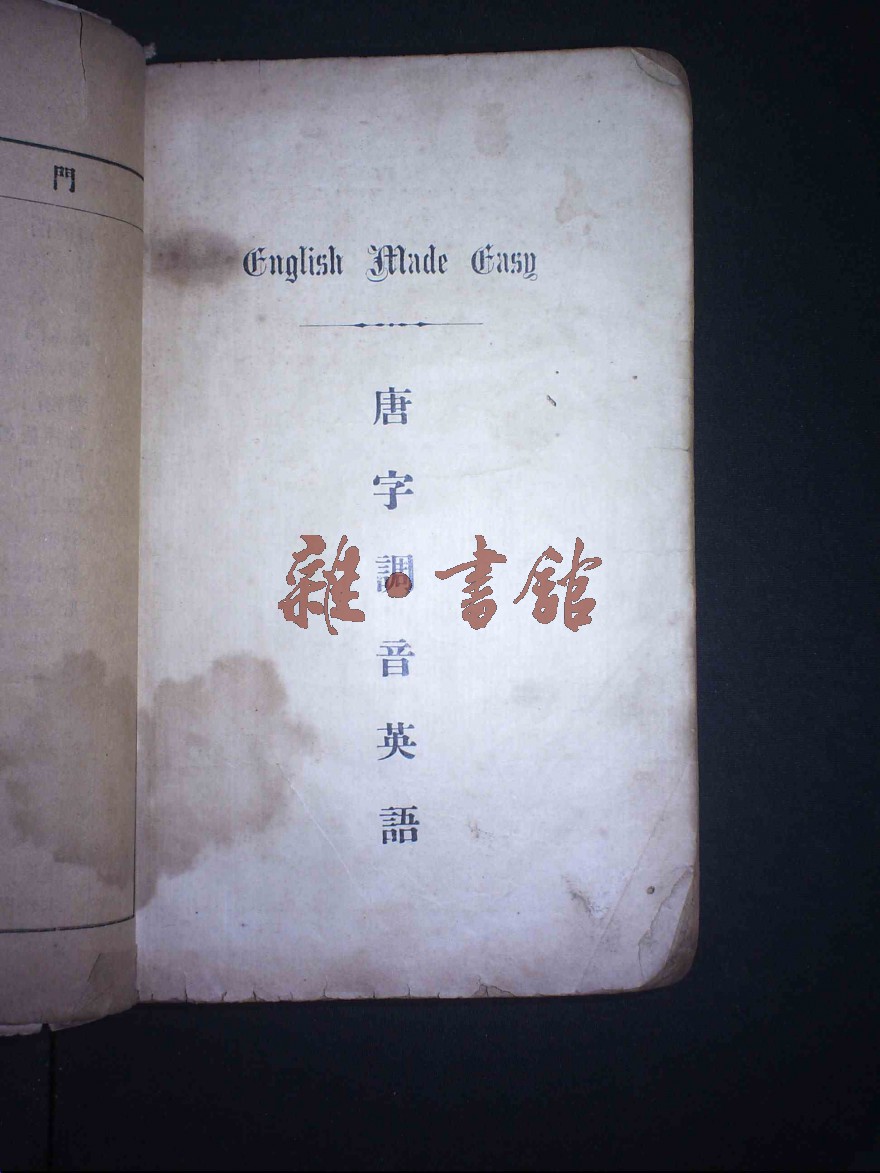 門
English Made Easy
唐字調音英語
雜·書館